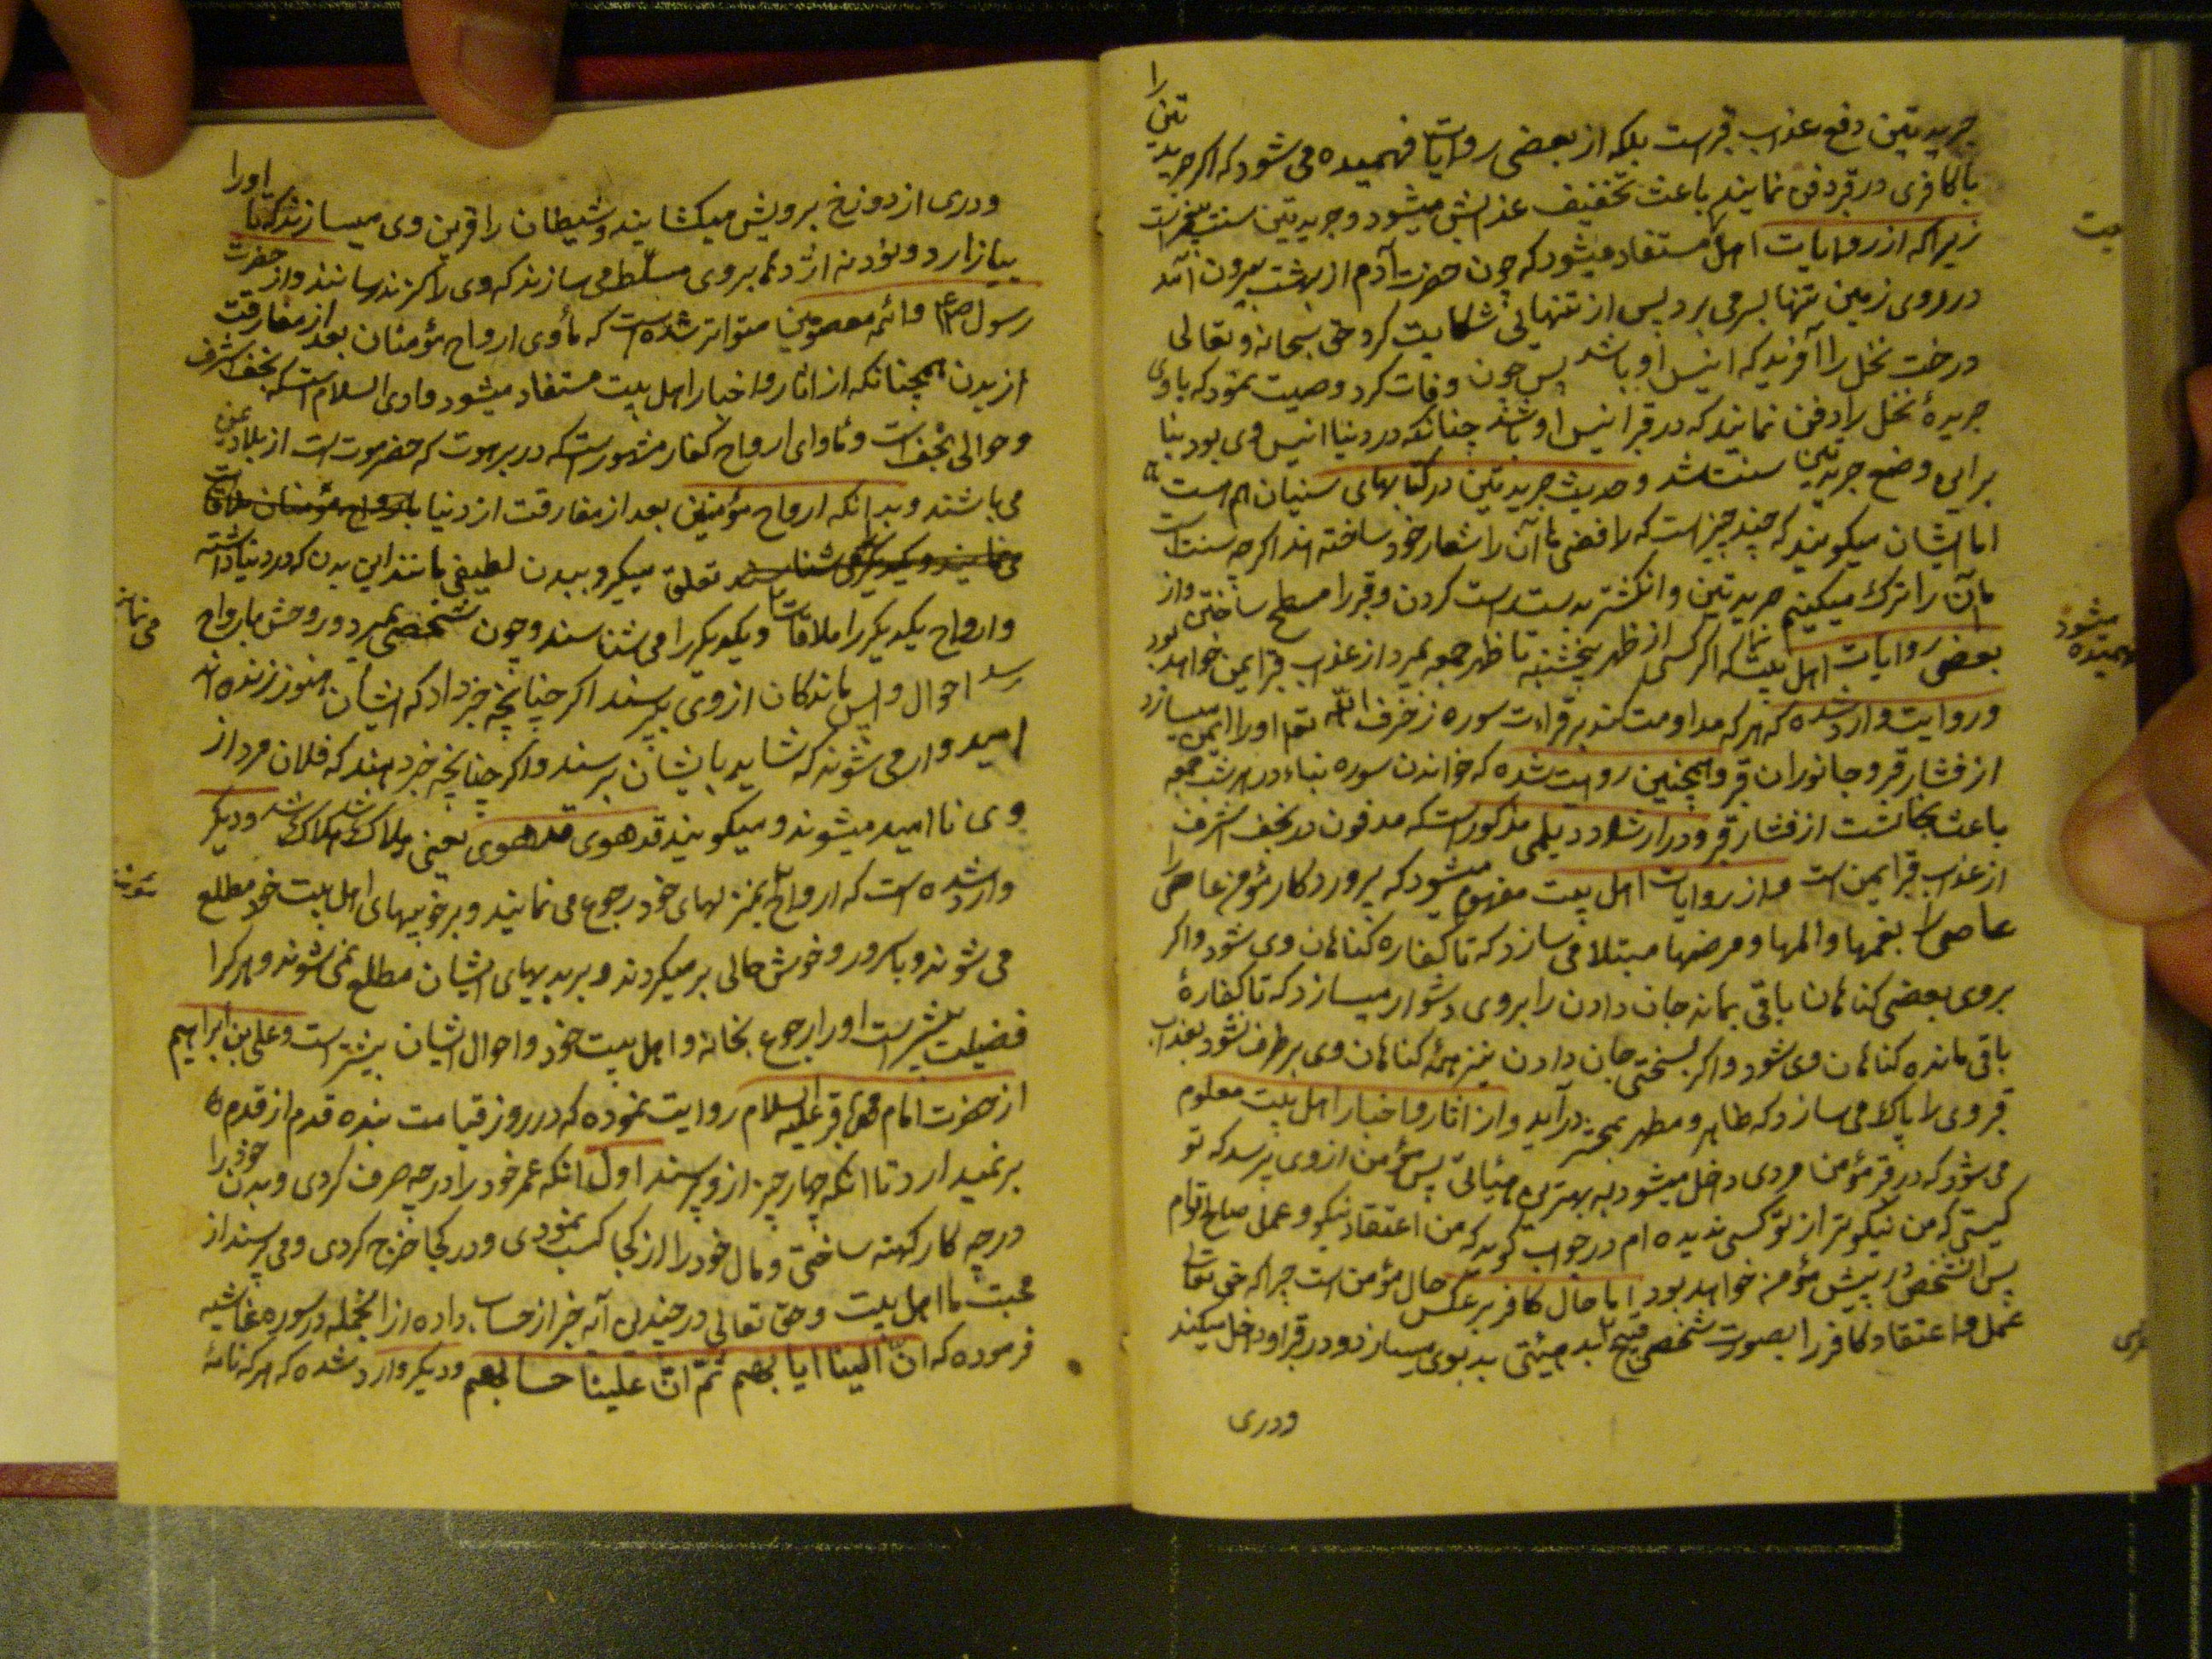 جریدتین دفع عذاب قبر است بلکه از بعضی روایات فهمیده می شود که اگر جریدتین را
با کافری در قبر دفن نمایند باعث تخفیف عذابش میشود و جریدتین سنت
زیرا که از روایات اهل بیت مستفاد میشود که چون حضرت آدم از بهشت بیرون آمد
در روی زمین تنها بسر می برد پس از تنهایی شکایت کرد حق سبحانه و تعالی
درخت نخل را آفرید که انیس او باشد پس چون وفات کرد وصیت نمود که با وی
جریدهٔ نخل را دفن نمایند که در قبر انیس او باشد چنانکه در دنیا انیس وی بود بنا
براین وضع جریدتین سنت شد و حدیث جریدتین در کتابهای سنیان هم است
اما ایشان میگویند که چند چیز است که رافضی ها آن را شعار خود ساخته اند اگرچه سنت است
ما آن را ترک میکنیم جریدتین و انگشتر بدست راست کردن و قبر را مسطح ساختن و از
بعضی روایات اهل بیت که اگر کسی از ظهر پنجشنبه تا ظهر جمعه بمیرد از عذاب قبر ایمن خواهد بود
و روایت وارد شده که هر که مداومت کند بر قراءت سوره زخرف الله تعم او را ایمن میسازد
از فشار قبر و جانوران قبر و همچنین روایت شده که خواندن سوره نساء در هر شب جمعه
باعث نجاتست از فشار قبر و در ارشاد دیلمی مذکور است که مدفون در نجف اشرف
از عذاب قبر ایمن است و از روایات اهل بیت مفهوم میشود که پروردگار مؤمن عاصی را
عاصی را بغمها و المها و مرضها مبتلا می سازد که تا کفاره گناهان وی شود و اگر
بر وی بعضی گناهان باقی بماند جان دادن را بر وی دشوار میسازد که تا کفارهٔ
باقی مانده گناهان وی شود و اگر بسختی جان دادن نیز همه گناهان وی برطرف نشود بعذاب
قبر وی را پاک می سازد که طاهر و مطهر بمحشر درآید و از اثار و اخبار اهل بیت معلوم
می شود که در قبر مؤمن مردی داخل میشود به بهترین هیئاتی پس مؤمن از وی پرسد که تو
کیستی که من نیکوتر از تو کسی ندیده ام در جواب گوید که من اعتقاد نیکو و عمل صالح توام
پس آن شخص در پیش مؤمن خواهد بود اما حال کافر برعکس حال مؤمن است چرا که حق تعالی
عمل و اعتقاد کافر را بصورت شخص قبیح بد هیئتی بد بوی میسازد و در قبر او داخل میکند
ودری
میشود
فهمیده
ودری از دوزخ برویش میکشایند و شیطان را قرین وی میسازند که تا او را
بیازارد و نود نه اژدها بر وی مسلّط می سازند که وی را گزند رسانند و از حضرت
رسول و ائمه معصومین متواتر شده است که مأوی ارواح مؤمنان بعد از مفارقت
از بدن همچنانکه از اثار و اخبار اهل بیت مستفاد میشود وادی السلام است که نجف اشرف
و حوالی نجف است و مأوای ارواح کفار مشهور است که در برهوت که حضرموت است از بلاد یمن
می باشند و بدانکه ارواح مؤمنین بعد از مفارقت از دنیا بارواح مؤمنان ملاقات
می نمایند و یکدیگر می شناسند تعلق میگیرد ببدن لطیفی مانند این بدن که در دنیا داشته
و ارواح یکدیگر را ملاقات و یکدیگر را می شناسند و چون شخصی بمیرد و روحش بارواح
می نمایند
رسد احوال واپس ماندکان از وی پرسند اگر چنانچه خبر داد که ایشان هنوز زنده اند
امیدوار می شوند که شاید بایشان برسند و اگر چنانچه خبر دهند که فلان مرد از
وی نا امید میشوند و میگویند قد هوی قد هوی یعنی هلاک شد هلاک شد و دیگر
وارد شده است که ارواح بمنزلهای خود رجوع می نمایند و بر خوبیهای اهل بیت خود مطلع
می شوند و با سرور و خوش حالی بر میگردند و بر بدیهای ایشان مطلع نمی شوند و هر کرا
فضیلت بیشتر است او را رجوع بخانه و اهل بیت خود و احوال ایشان بیشتر است و علی بن ابراهیم
از حضرت امام محمد باقر علیه السلام روایت نموده که در روز قیامت بنده قدم از قدم
بر نمیدارد تا آنکه چهار چیز از و پرسند اول آنکه عمر خود را در چه صرف کردی و بدن خود را
در چه کار کهنه ساختی و مال خود را از کجا کسب نمودی و در کجا خرج کردی و می پرسند از
محبت ما اهل بیت و حق تعالی در چندین آیه خبر از حساب داده از انجمله در سوره غاشیه
فرموده که انّ الینا ایابهم ثمّ انّ علینا حسابهم و دیگر وارد شده که هر که نامهٔ